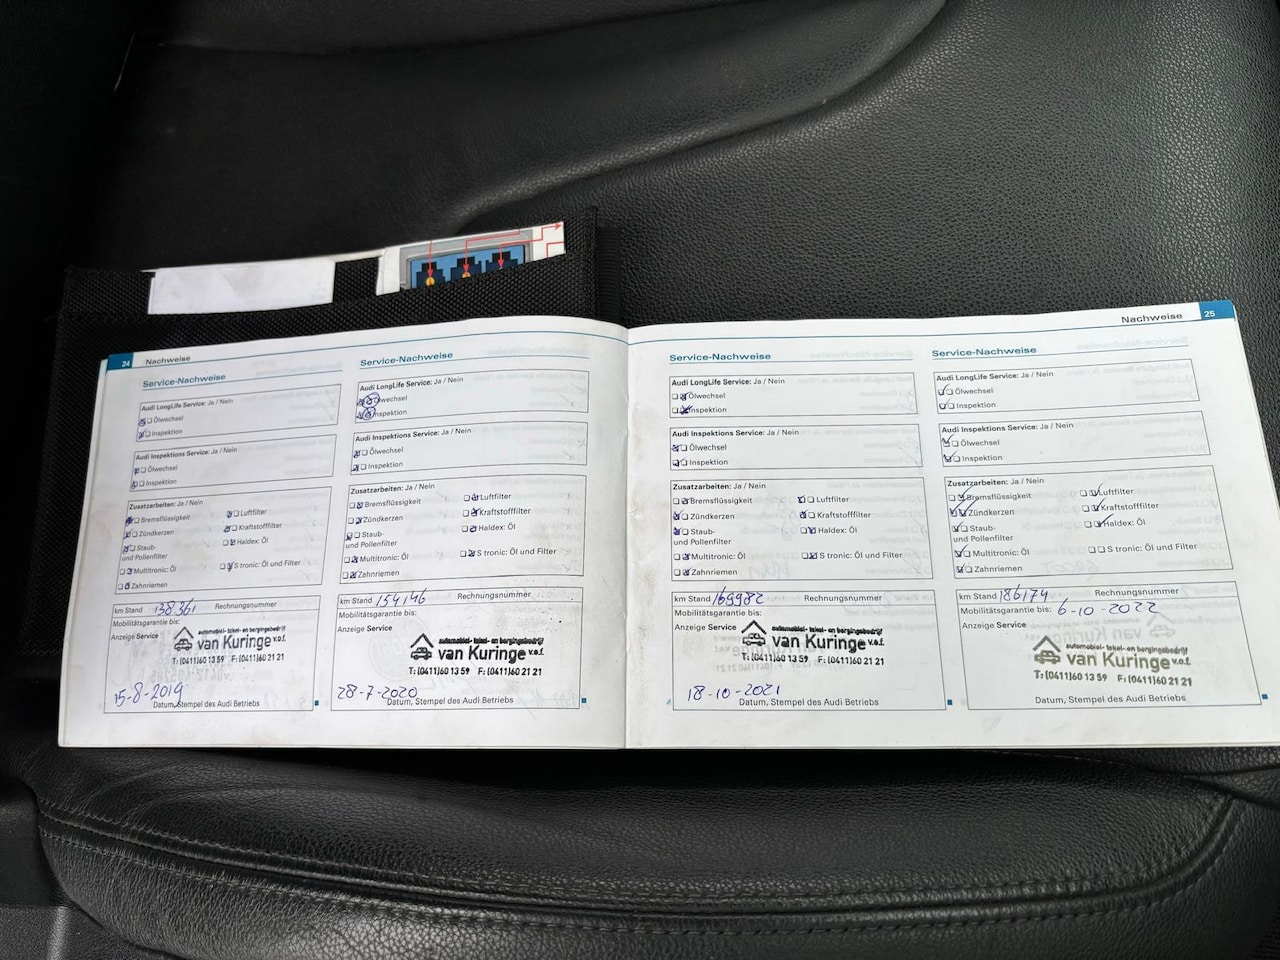 24 Nachweise
Service-Nachweise
Audi LongLife Service: Ja / Nein
Ölwechsel
Inspektion
Audi Inspektions Service: Ja / Nein
Ölwechsel
Inspektion
Zusatzarbeiten: Ja / Nein
Bremsflüssigkeit
Luftfilter
Zündkerzen
Kraftstofffilter
Staub-
und Pollenfilter
Haldex: Öl
Multitronic: Öl
S tronic: Öl und Filter
Zahnriemen
km Stand 138361 Rechnungsnummer
Mobilitätsgarantie bis:
Anzeige Service
automobiel- takel- en bergingsbedrijf
van Kuringe v.o.f.
T: (0411)60 13 59 F: (0411)60 21 21
15-8-2019
Datum, Stempel des Audi Betriebs
Service-Nachweise
Audi LongLife Service: Ja / Nein
Ölwechsel
Inspektion
Audi Inspektions Service: Ja / Nein
Ölwechsel
Inspektion
Zusatzarbeiten: Ja / Nein
Bremsflüssigkeit
Luftfilter
Zündkerzen
Kraftstofffilter
Staub-
und Pollenfilter
Haldex: Öl
Multitronic: Öl
S tronic: Öl und Filter
Zahnriemen
km Stand 154146 Rechnungsnummer
Mobilitätsgarantie bis:
Anzeige Service
automobiel- takel- en bergingsbedrijf
van Kuringe v.o.f.
T: (0411)60 13 59 F: (0411)60 21 21
28-7-2020
Datum, Stempel des Audi Betriebs
Nachweise 25
Service-Nachweise
Audi LongLife Service: Ja / Nein
Ölwechsel
Inspektion
Audi Inspektions Service: Ja / Nein
Ölwechsel
Inspektion
Zusatzarbeiten: Ja / Nein
Bremsflüssigkeit
Luftfilter
Zündkerzen
Kraftstofffilter
Staub-
und Pollenfilter
Haldex: Öl
Multitronic: Öl
S tronic: Öl und Filter
Zahnriemen
km Stand 169982 Rechnungsnummer
Mobilitätsgarantie bis:
Anzeige Service
automobiel- takel- en bergingsbedrijf
van Kuringe v.o.f.
T: (0411)60 13 59 F: (0411)60 21 21
18-10-2021
Datum, Stempel des Audi Betriebs
Service-Nachweise
Audi LongLife Service: Ja / Nein
Ölwechsel
Inspektion
Audi Inspektions Service: Ja / Nein
Ölwechsel
Inspektion
Zusatzarbeiten: Ja / Nein
Bremsflüssigkeit
Luftfilter
Zündkerzen
Kraftstofffilter
Staub-
und Pollenfilter
Haldex: Öl
Multitronic: Öl
S tronic: Öl und Filter
Zahnriemen
km Stand 186174 Rechnungsnummer
Mobilitätsgarantie bis: 6-10-2022
Anzeige Service
automobiel- takel- en bergingsbedrijf
van Kuringe v.o.f.
T: (0411)60 13 59 F: (0411)60 21 21
Datum, Stempel des Audi Betriebs